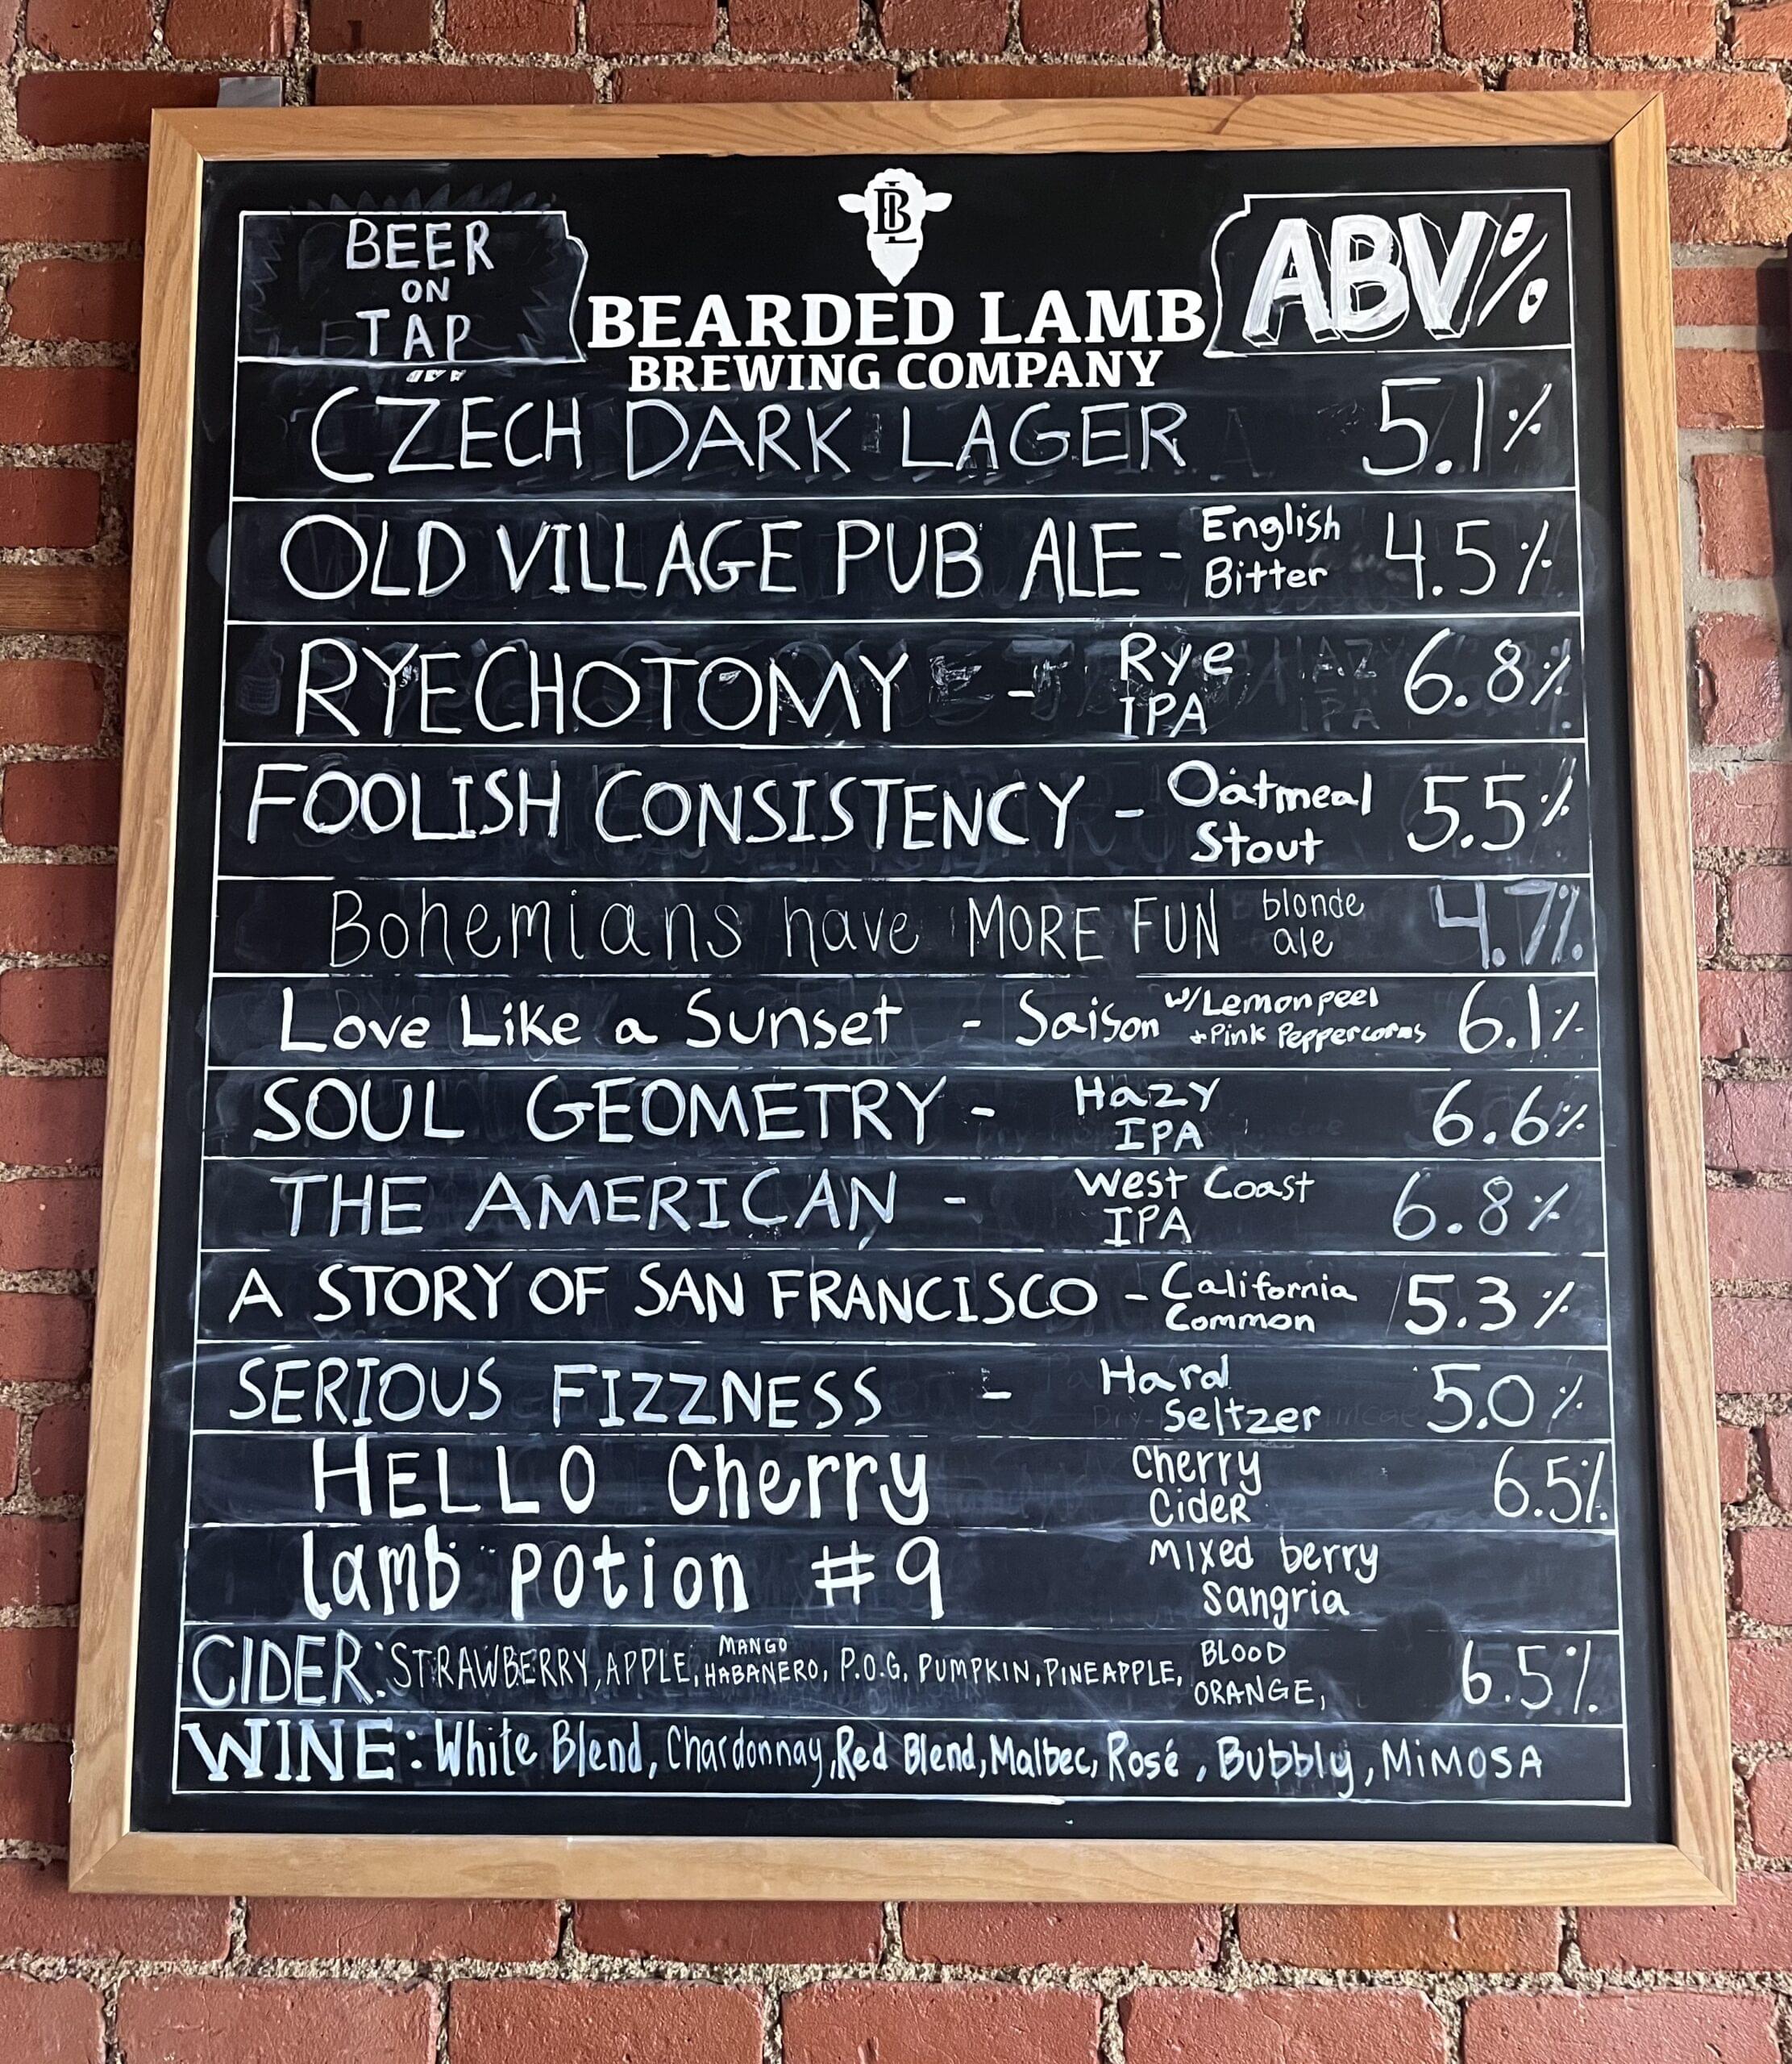 BEER
ON
TAP
BL
BEARDED LAMB
BREWING COMPANY
ABV%
CZECH DARK LAGER 5.1%
OLD VILLAGE PUB ALE - English Bitter 4.5%
RYECHOTOMY - Rye IPA 6.8%
FOOLISH CONSISTENCY - Oatmeal Stout 5.5%
Bohemians have MORE FUN blonde ale 4.7%
Love Like a Sunset - Saison w/Lemon peel + Pink Peppercorns 6.1%
SOUL GEOMETRY - Hazy IPA 6.6%
THE AMERICAN - West Coast IPA 6.8%
A STORY OF SAN FRANCISCO - California Common 5.3%
SERIOUS FIZZNESS - Hard Seltzer 5.0%
HELLO Cherry Cherry CideR 6.5%
lamb potion #9 Mixed berry Sangria
CIDER: STRAWBERRY, APPLE, MANGO HABANERO, P.O.G, PUMPKIN, PINEAPPLE, BLOOD ORANGE, 6.5%
WINE: White Blend, Chardonnay, Red Blend, Malbec, Rosé, Bubbly, MiMOSA